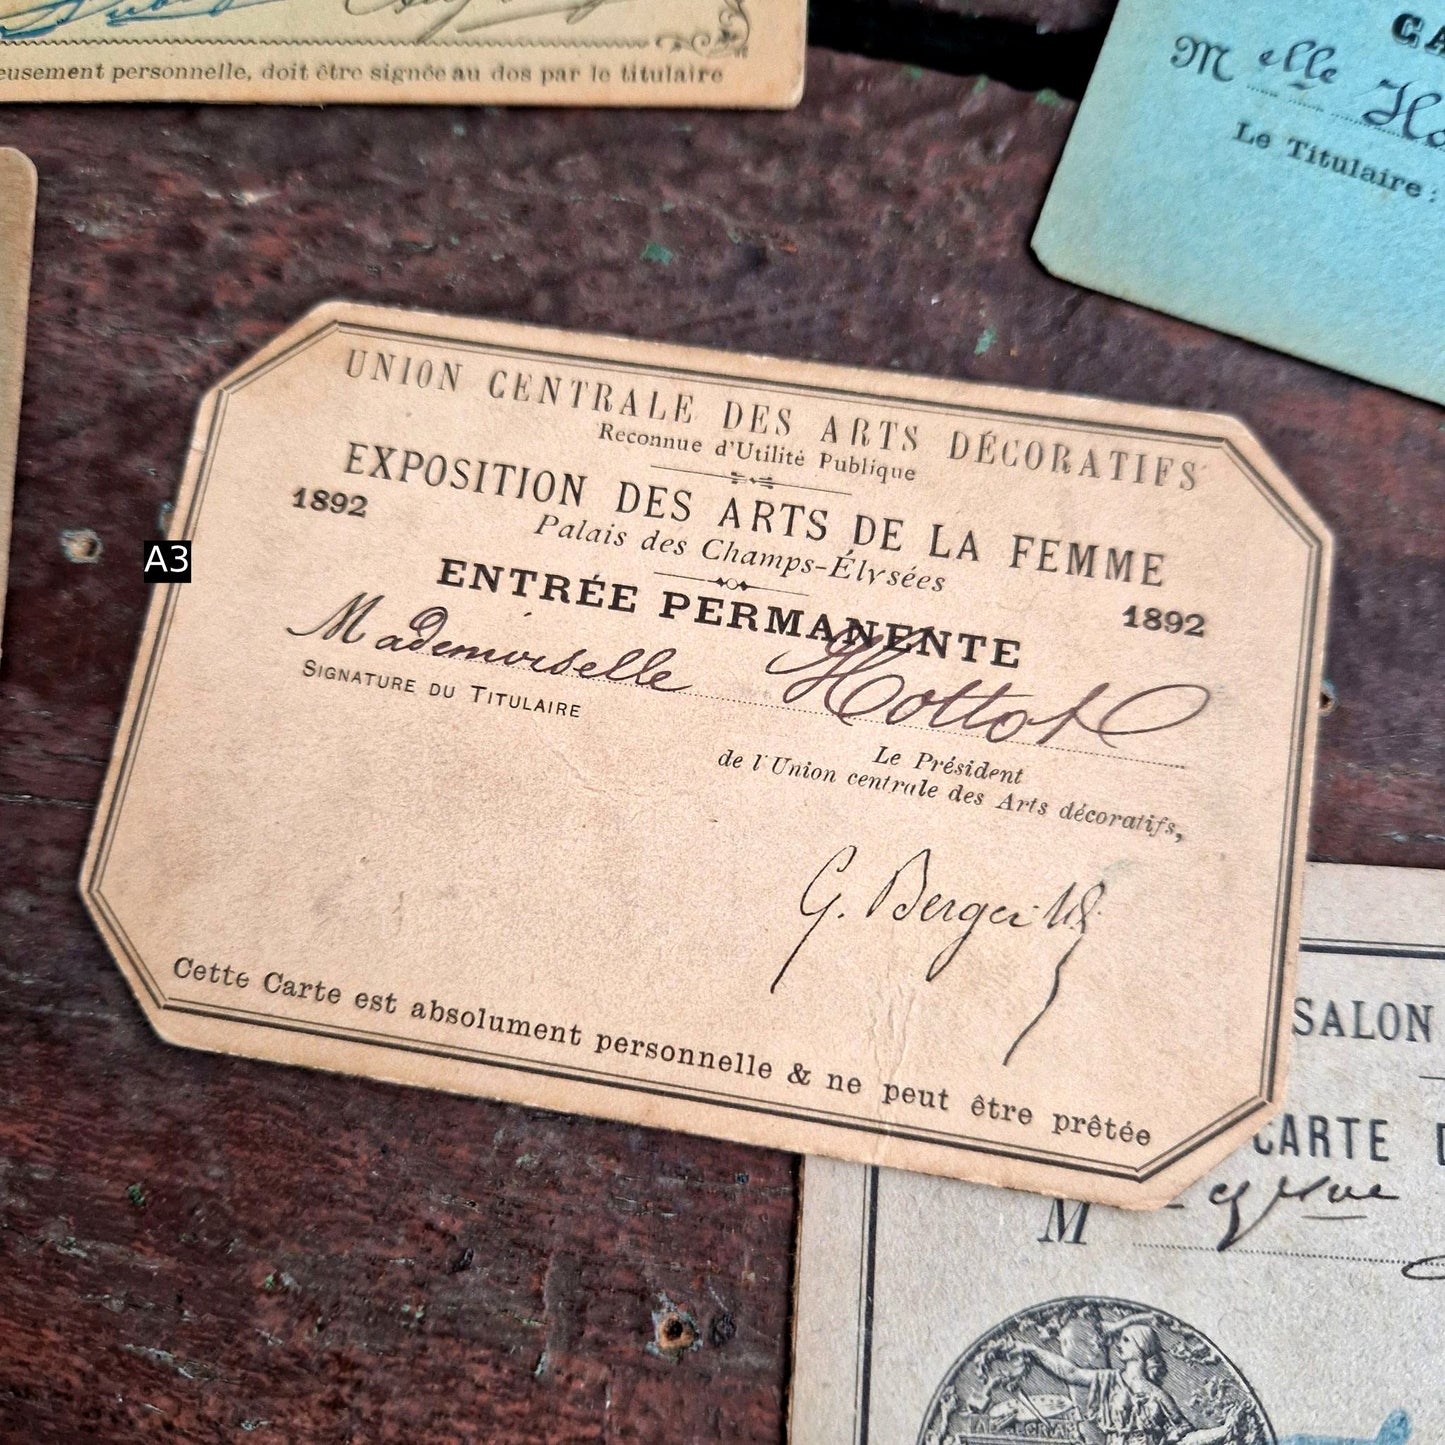 eusement personnelle, doit être signée au dos par le titulaire
M elle
Le Titulaire :
UNION CENTRALE DES ARTS DÉCORATIFS
Reconnue d'Utilité Publique
EXPOSITION DES ARTS DE LA FEMME
1892
Palais des Champs-Élysées
1892
ENTRÉE PERMANENTE
Mademoiselle Hottot
SIGNATURE DU TITULAIRE
Le Président
de l'Union centrale des Arts décoratifs,
G. Berger
Cette Carte est absolument personnelle & ne peut être prêtée
A3
SALON
CARTE
M